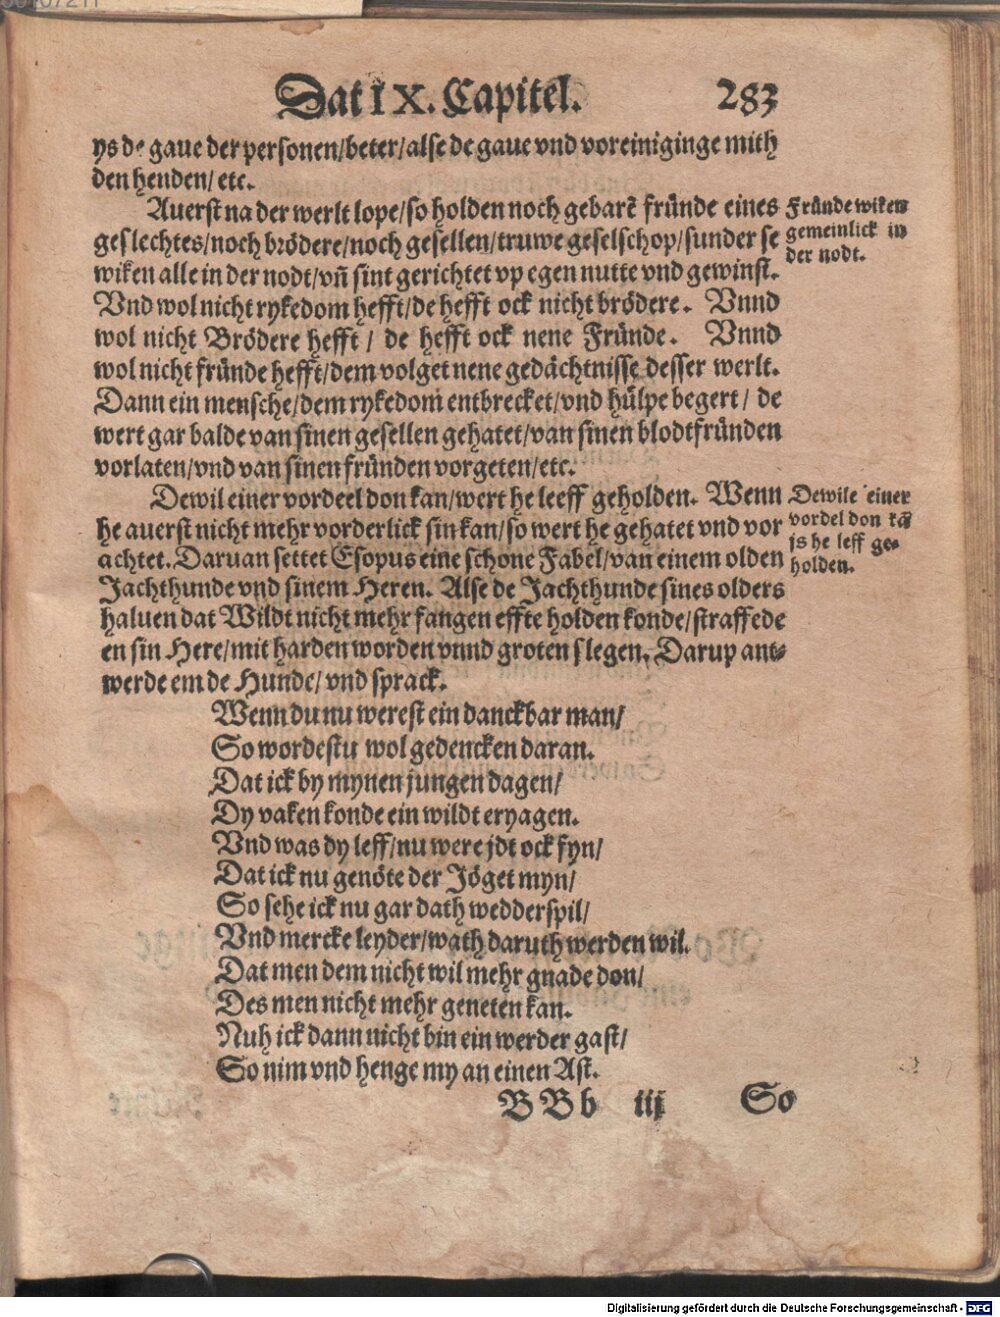 Dat IX. Capitel. 283
ys de gaue der personen/beter/alse de gaue vnd voreiniginge mith
den henden/ etc.
Auerst na der werlt lope/so holden noch gebarē fründe eines
geslechtes/noch brödere/noch gesellen/truwe geselschop/sunder se
wiken alle in der nodt/vn̄ sint gerichtet vp egen nutte vnd gewinst.
Vnd wol nicht rykedom hefft/de hefft ock nicht brödere. Vnnd
wol nicht Brödere hefft / de hefft ock nene Fründe. Vnnd
wol nicht fründe hefft/dem volget nene gedächtnisse desser werlt.
Dann ein mensche/dem rykedom entbrecket/vnd hülpe begert / de
wert gar balde van sinen gesellen gehatet/van sinen blodtfründen
vorlaten/vnd van sinen fründen vorgeten/etc.
Fründe wiken
gemeinlick in
der nodt.
Dewil einer vordeel don kan/wert he leeff geholden. Wenn
he auerst nicht mehr vorderlick sin kan/so wert he gehatet vnd vor
achtet. Daruan settet Esopus eine schone Fabel/van einem olden
Jachthunde vnd sinem Heren. Alse de Jachthunde sines olders
haluen dat Wildt nicht mehr fangen effte holden konde/straffede
en sin Here/mit harden worden vnnd groten slegen. Darup ant⸗
werde em de Hunde/vnd sprack.
Dewile einer
vordel don kā
is he leff ge⸗
holden.
Wenn du nu werest ein danckbar man/
So wordestu wol gedencken daran.
Dat ick by mynen jungen dagen/
Dy vaken konde ein wildt eryagen.
Vnd was dy leff/nu were jdt ock fyn/
Dat ick nu genöte der Jöget myn/
So sehe ick nu gar dath wedderspil/
Vnd mercke leyder/wath daruth werden wil.
Dat men dem nicht wil mehr gnade don/
Des men nicht mehr geneten kan.
Nuh ick dann nicht bin ein werder gast/
So nim vnd henge my an einen Ast.
BBb iij So
Digitalisierung gefördert durch die Deutsche Forschungsgemeinschaft - DFG